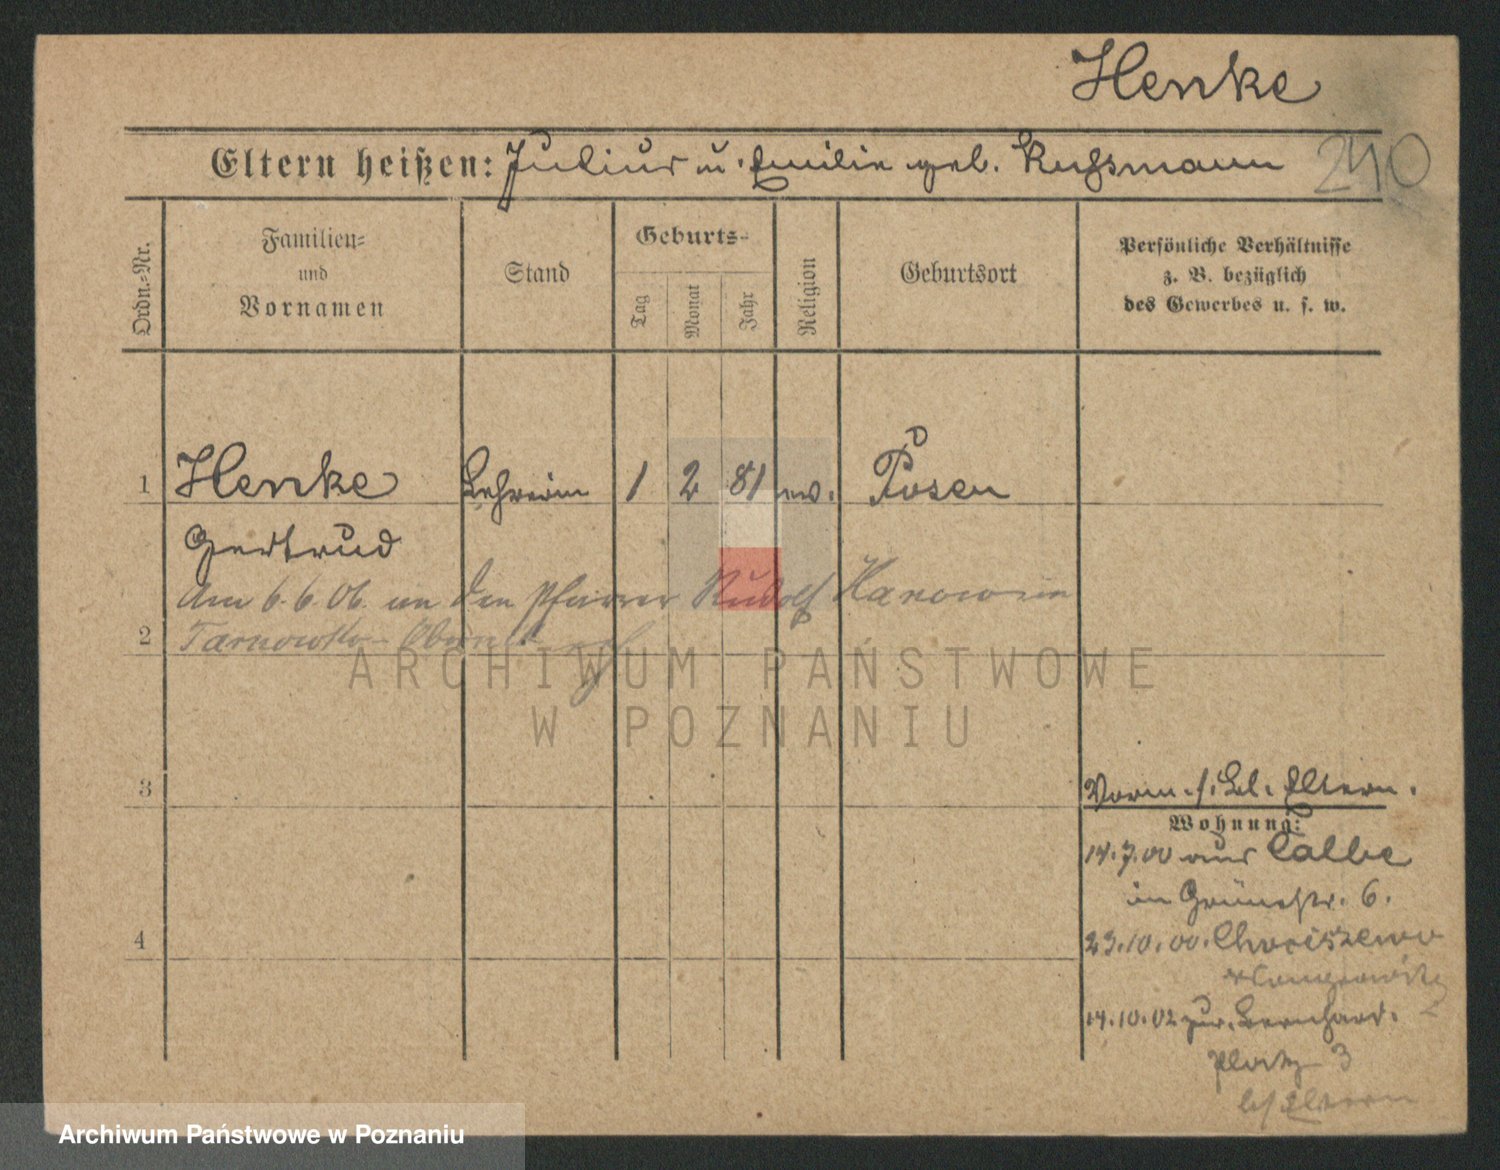 Henke
Eltern heißen: Julius u. Emilie geb. Russmann 240
Ordn.-Nr.
Familien-
und
Vornamen
Stand
Geburts-
Tag
Monat
Jahr
Religion
Geburtsort
Persönliche Verhältnisse
z. B. bezüglich
des Gewerbes u. s. w.
1 Henke Lehrerin 1 2 81 ev. Posen
Gertrud
Am 6.6.06. an den Pfarrer Rudolf Hanow in
2 Tarnowko Obornik
ARCHIWUM PAŃSTWOWE
W POZNANIU
3
Vorm. s. Bl. Eltern.
Wohnung:
14.7.00 aus Calbe
in Grünestr. 6.
4
23.10.00. Chwiszewo
14.10.02 zur. Bernhard.
Platz 3
b/ Eltern
Archiwum Państwowe w Poznaniu